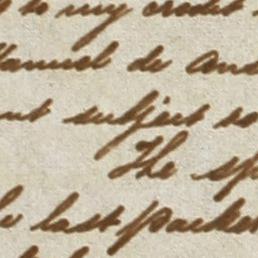 to my credit
Manuel de And
nt subject so
The sp
last packet